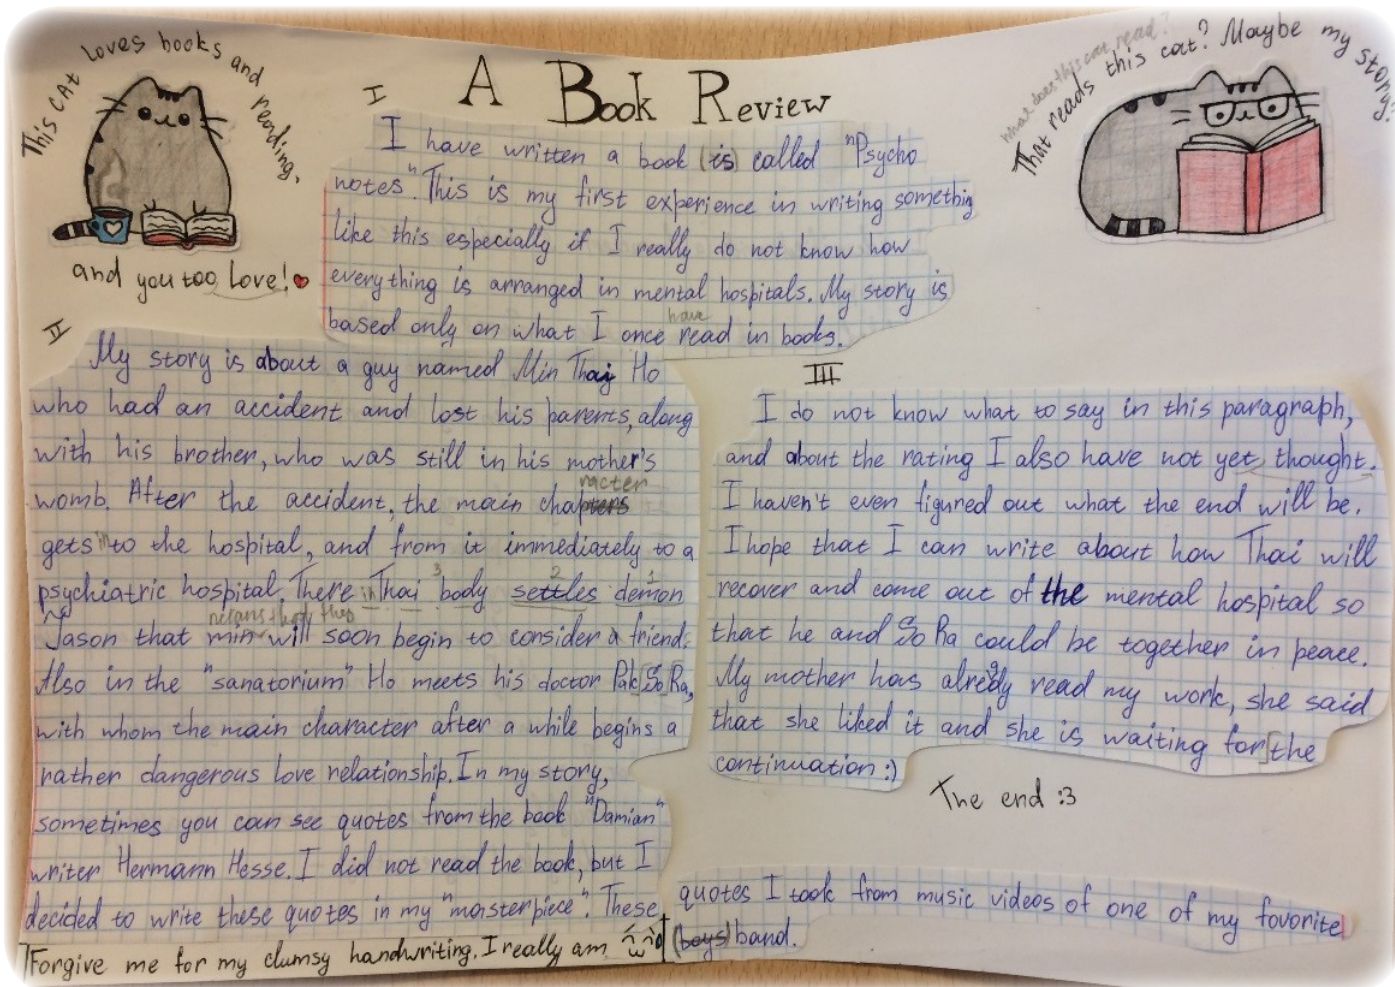 This cat loves books and reading,
and you too love!
What does this cat read?
That reads this cat? Maybe my story.
A Book Review
I
I have written a book (is) called "Psycho
notes". This is my first experience in writing something
like this especially if I really do not know how
everything is arranged in mental hospitals. My story is
have
based only on what I once read in books.
II
My story is about a guy named Min Thai Ho
who had an accident and lost his parents, along
with his brother, who was still in his mother's
womb. After the accident, the main chapters
racter
gets into the hospital, and from it immediately to a
psychiatric hospital. There in Thai body settles demon
3 2 1
Jason that min will soon begin to consider a friend.
Also in the "sanatorium" Ho meets his doctor Pak So Ra,
with whom the main character after a while begins a
rather dangerous love relationship. In my story,
sometimes you can see quotes from the book "Damian"
writer Hermann Hesse. I did not read the book, but I
decided to write these quotes in my "masterpiece". These
quotes I took from music videos of one of my favorite
(boys) band.
Forgive me for my clumsy handwriting. I really am
III
I do not know what to say in this paragraph,
and about the rating I also have not yet thought.
I haven't even figured out what the end will be.
I hope that I can write about how Thai will
recover and come out of the mental hospital so
that he and So Ra could be together in peace.
My mother has already read my work, she said
that she liked it and she is waiting for the
continuation :)
The end :3